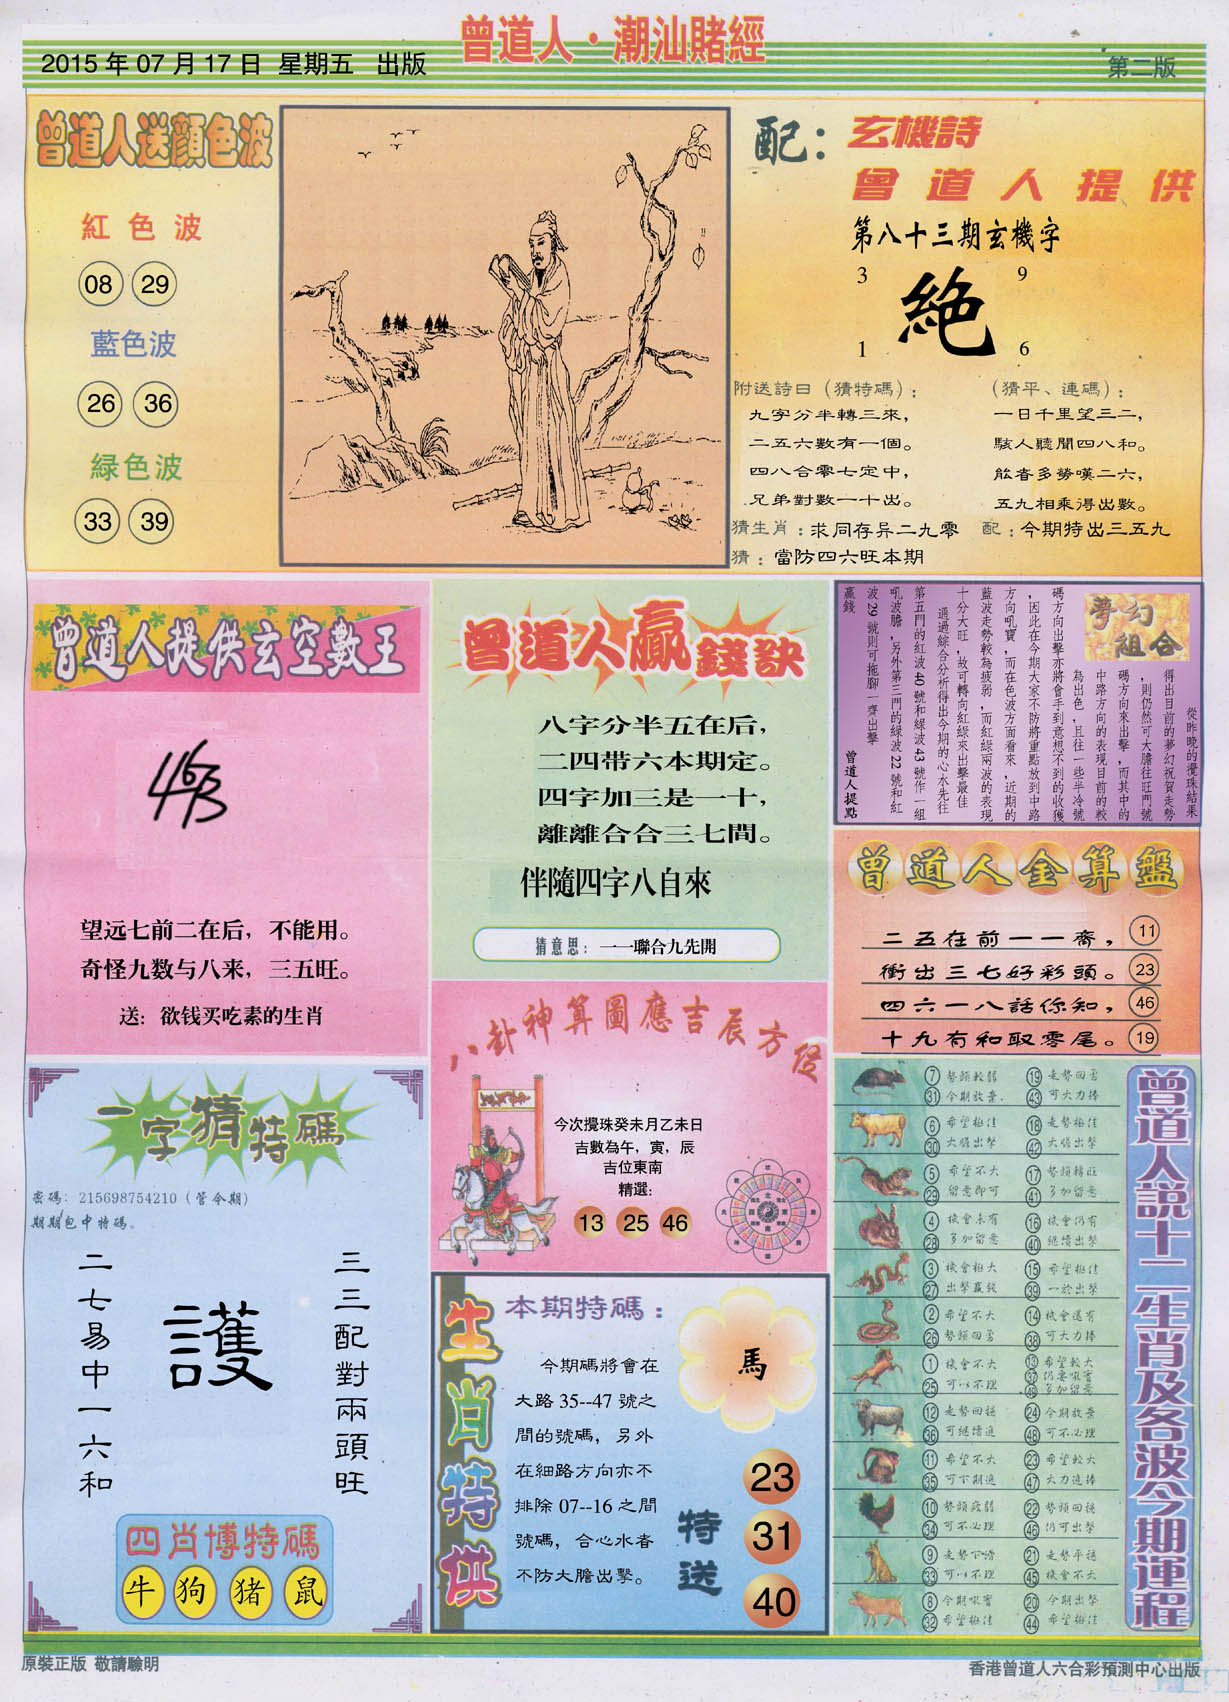 曾道人·潮汕賭經
2015年07月17日 星期五 出版
第二版
曾道人送顏色波
紅色波
08 29
藍色波
26 36
緑色波
33 39
配：玄機詩
曾道人提供
第八十三期玄機字
3 9
絶
1 6
附送詩日（猜特碼）：
九字分半轉三來，
二五六數有一個。
四八合零七定中，
兄弟對數一十出。
（猜平、連碼）：
一日千里望三二，
駭人聽聞四八和。
能者多勞嘆二六，
五九相乘得出數。
猜生肖：求同存异二九零
配：今期特出三五九
猜：當防四六旺本期
曾道人提供玄空數王
463
望远七前二在后，不能用。
奇怪九数与八来，三五旺。
送：欲钱买吃素的生肖
曾道人贏錢訣
八字分半五在后，
二四带六本期定。
四字加三是一十，
離離合合三七間。
伴隨四字八自來
猜意思：一一聯合九先開
夢幻
組合
從昨晚的攪珠結果
得出目前的夢幻祝賀走勢
，則仍然可大膽往旺門號
碼方向來出擊，而其中的
中路方向的表現目前的較
為出色，且往一些半冷號
碼方向出擊亦將會手到意想不到的收獲
，因此在今期大家不防將重點放到中路
方向吼寶，而在色波方面看來，近期的
藍波走勢較為疲弱，而紅綠兩波的表現
十分大旺，故可轉向紅綠來出擊最佳
通過綜合分析得出今期的心水先往
第五門的紅波40號和綠波43號作一組
吼波膽，另外第三門的綠波22號和紅
波29號則可拖腳一齊出擊
贏錢
曾道人提點
曾道人金算盤
二五在前一一齋， 11
衝出三七好彩頭。 23
四六一八話你知， 46
十九有和取零尾。 19
八卦神算圖應吉辰方位
今次攪珠癸未月乙未日
吉數為午，寅，辰
吉位東南
精選：
13 25 46
一字猜特碼
密碼：215698754210（管令期）
期期包中特碼。
三三配對兩頭旺
護
二七易中一六和
四肖博特碼
牛 狗 猪 鼠
生肖特供
本期特碼：
今期碼將會在
大路35--47號之
間的號碼，另外
在細路方向亦不
排除07--16之間
號碼，合心水者
不防大膽出擊。
馬
特送
23
31
40
曾道人説十二生肖及各波今期運程
7 勢頭較弱 19 走勢回勇
31 今期放棄 43 可大力捧
6 希望極佳 18 走勢極佳
30 大膽出擊 42 大膽出擊
5 希望不大 17 勢頭轉旺
29 留意即可 41 多加留意
4 機會未有 16 機會仍有
28 多加留意 40 繼續出擊
3 機會極大 15 希望極佳
27 出擊贏錢 39 一於出擊
2 希望不大 14 機會還有
26 勢頭回勇 38 可大力捧
1 機會不大 13 希望較大
25 可以不理 37 仍要吼實
49 多加留意
12 走勢回穩 24 今期放棄
36 可繼續追 48 可不必理
11 希望不大 23 希望較大
35 可下期追 47 大力追捧
10 勢頭疲弱 22 勢頭回穩
34 可不必理 46 仍可出擊
9 走勢下滑 21 走勢平穩
33 可以不理 45 機會不大
8 今期吼實 20 今期出擊
32 希望極佳 44 希望極佳
原裝正版 敬請驗明
香港曾道人六合彩預測中心出版